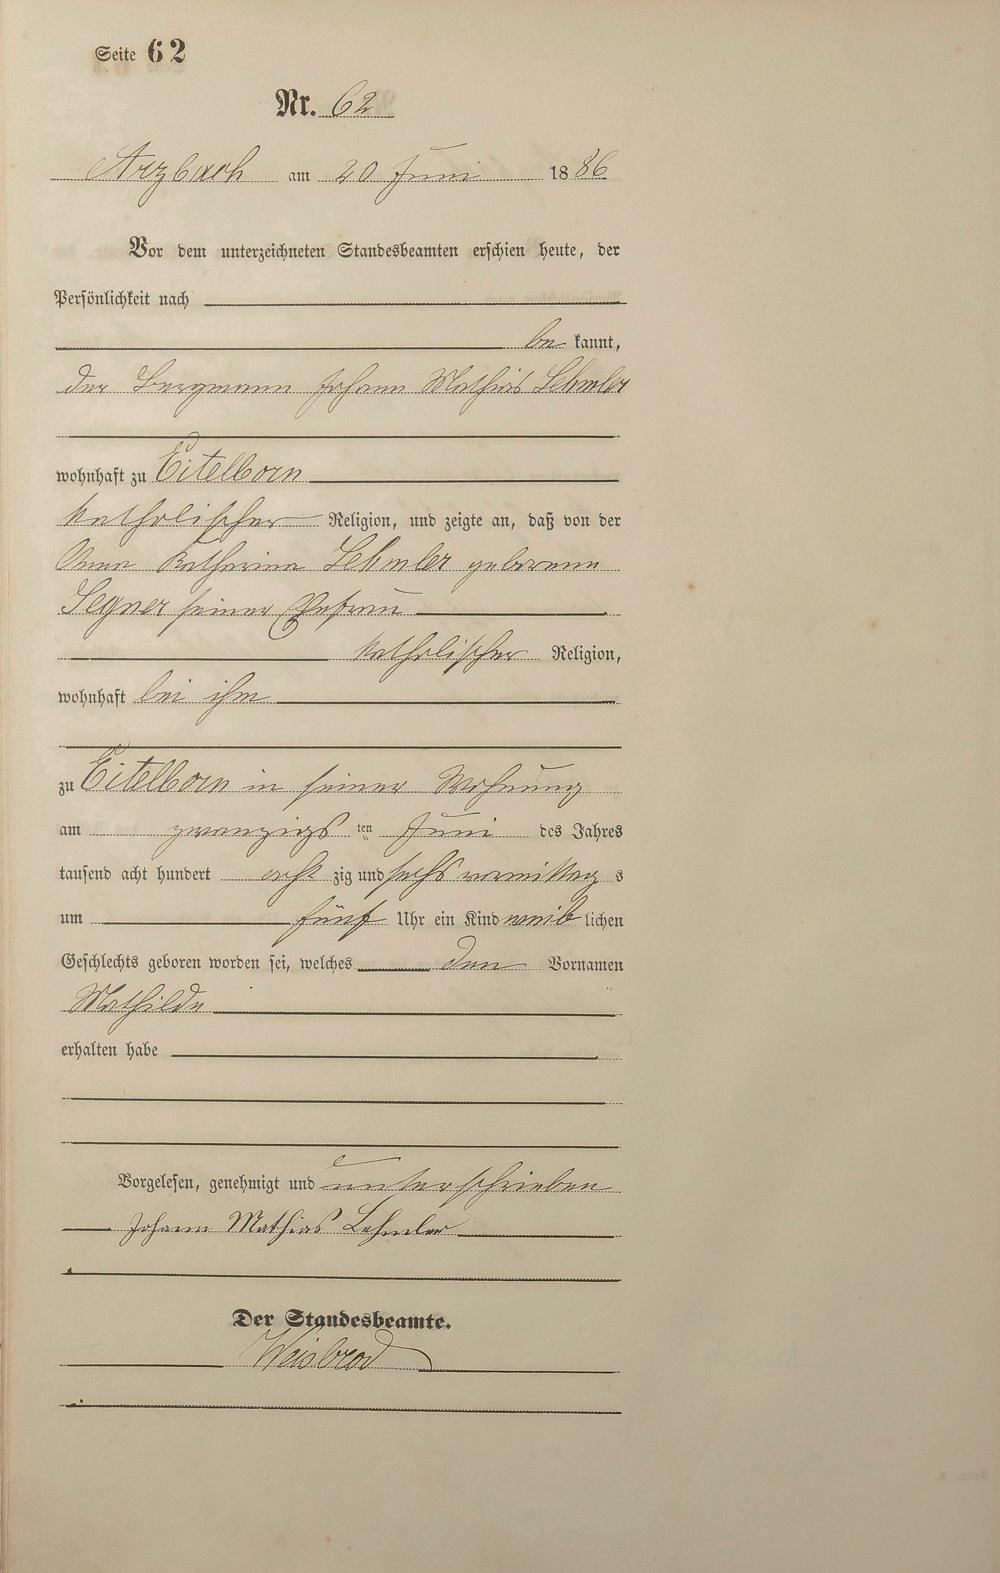 Seite 62
Nr. 62
Arzbach am 20 Juni 1886
Vor dem unterzeichneten Standesbeamten erschien heute, der
Persönlichkeit nach
be kannt,
der Bergmann Johann Mathias Lehmler
wohnhaft zu Eitelborn
katholischer Religion, und zeigte an, daß von der
Anna Katharina Lehmler geborenen
Segner seiner Ehefrau
katholischer Religion,
wohnhaft bei ihm
zu Eitelborn in seiner Wohnung
am zwanzigs ten Juni des Jahres
tausend acht hundert acht zig und sechs vormittag s
um fünf Uhr ein Kind weib lichen
Geschlechts geboren worden sei, welches den Vornamen
Mathilde
erhalten habe
Vorgelesen, genehmigt und unterschrieben
Johann Mathias Lehmler
Der Standesbeamte.
Weisbrod